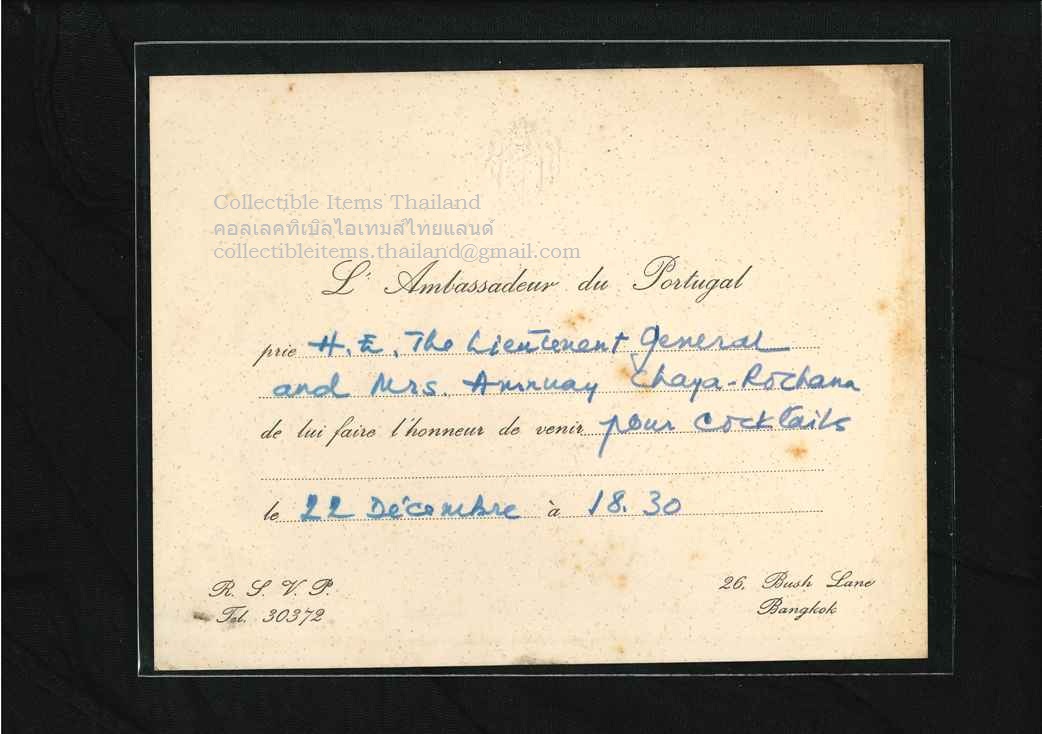 Collectible Items Thailand
คอลเลคทิเบิลไอเทมส์ไทยแลนด์
collectibleitems.thailand@gmail.com
L'Ambassadeur du Portugal
prie H.E. The Lieutenent General
and Mrs. Amnuay Chaya-Rochana
de lui faire l'honneur de venir pour cocktails
le 22 Décembre à 18.30
R. S. V. P.
Tel. 30372
26, Bush Lane
Bangkok